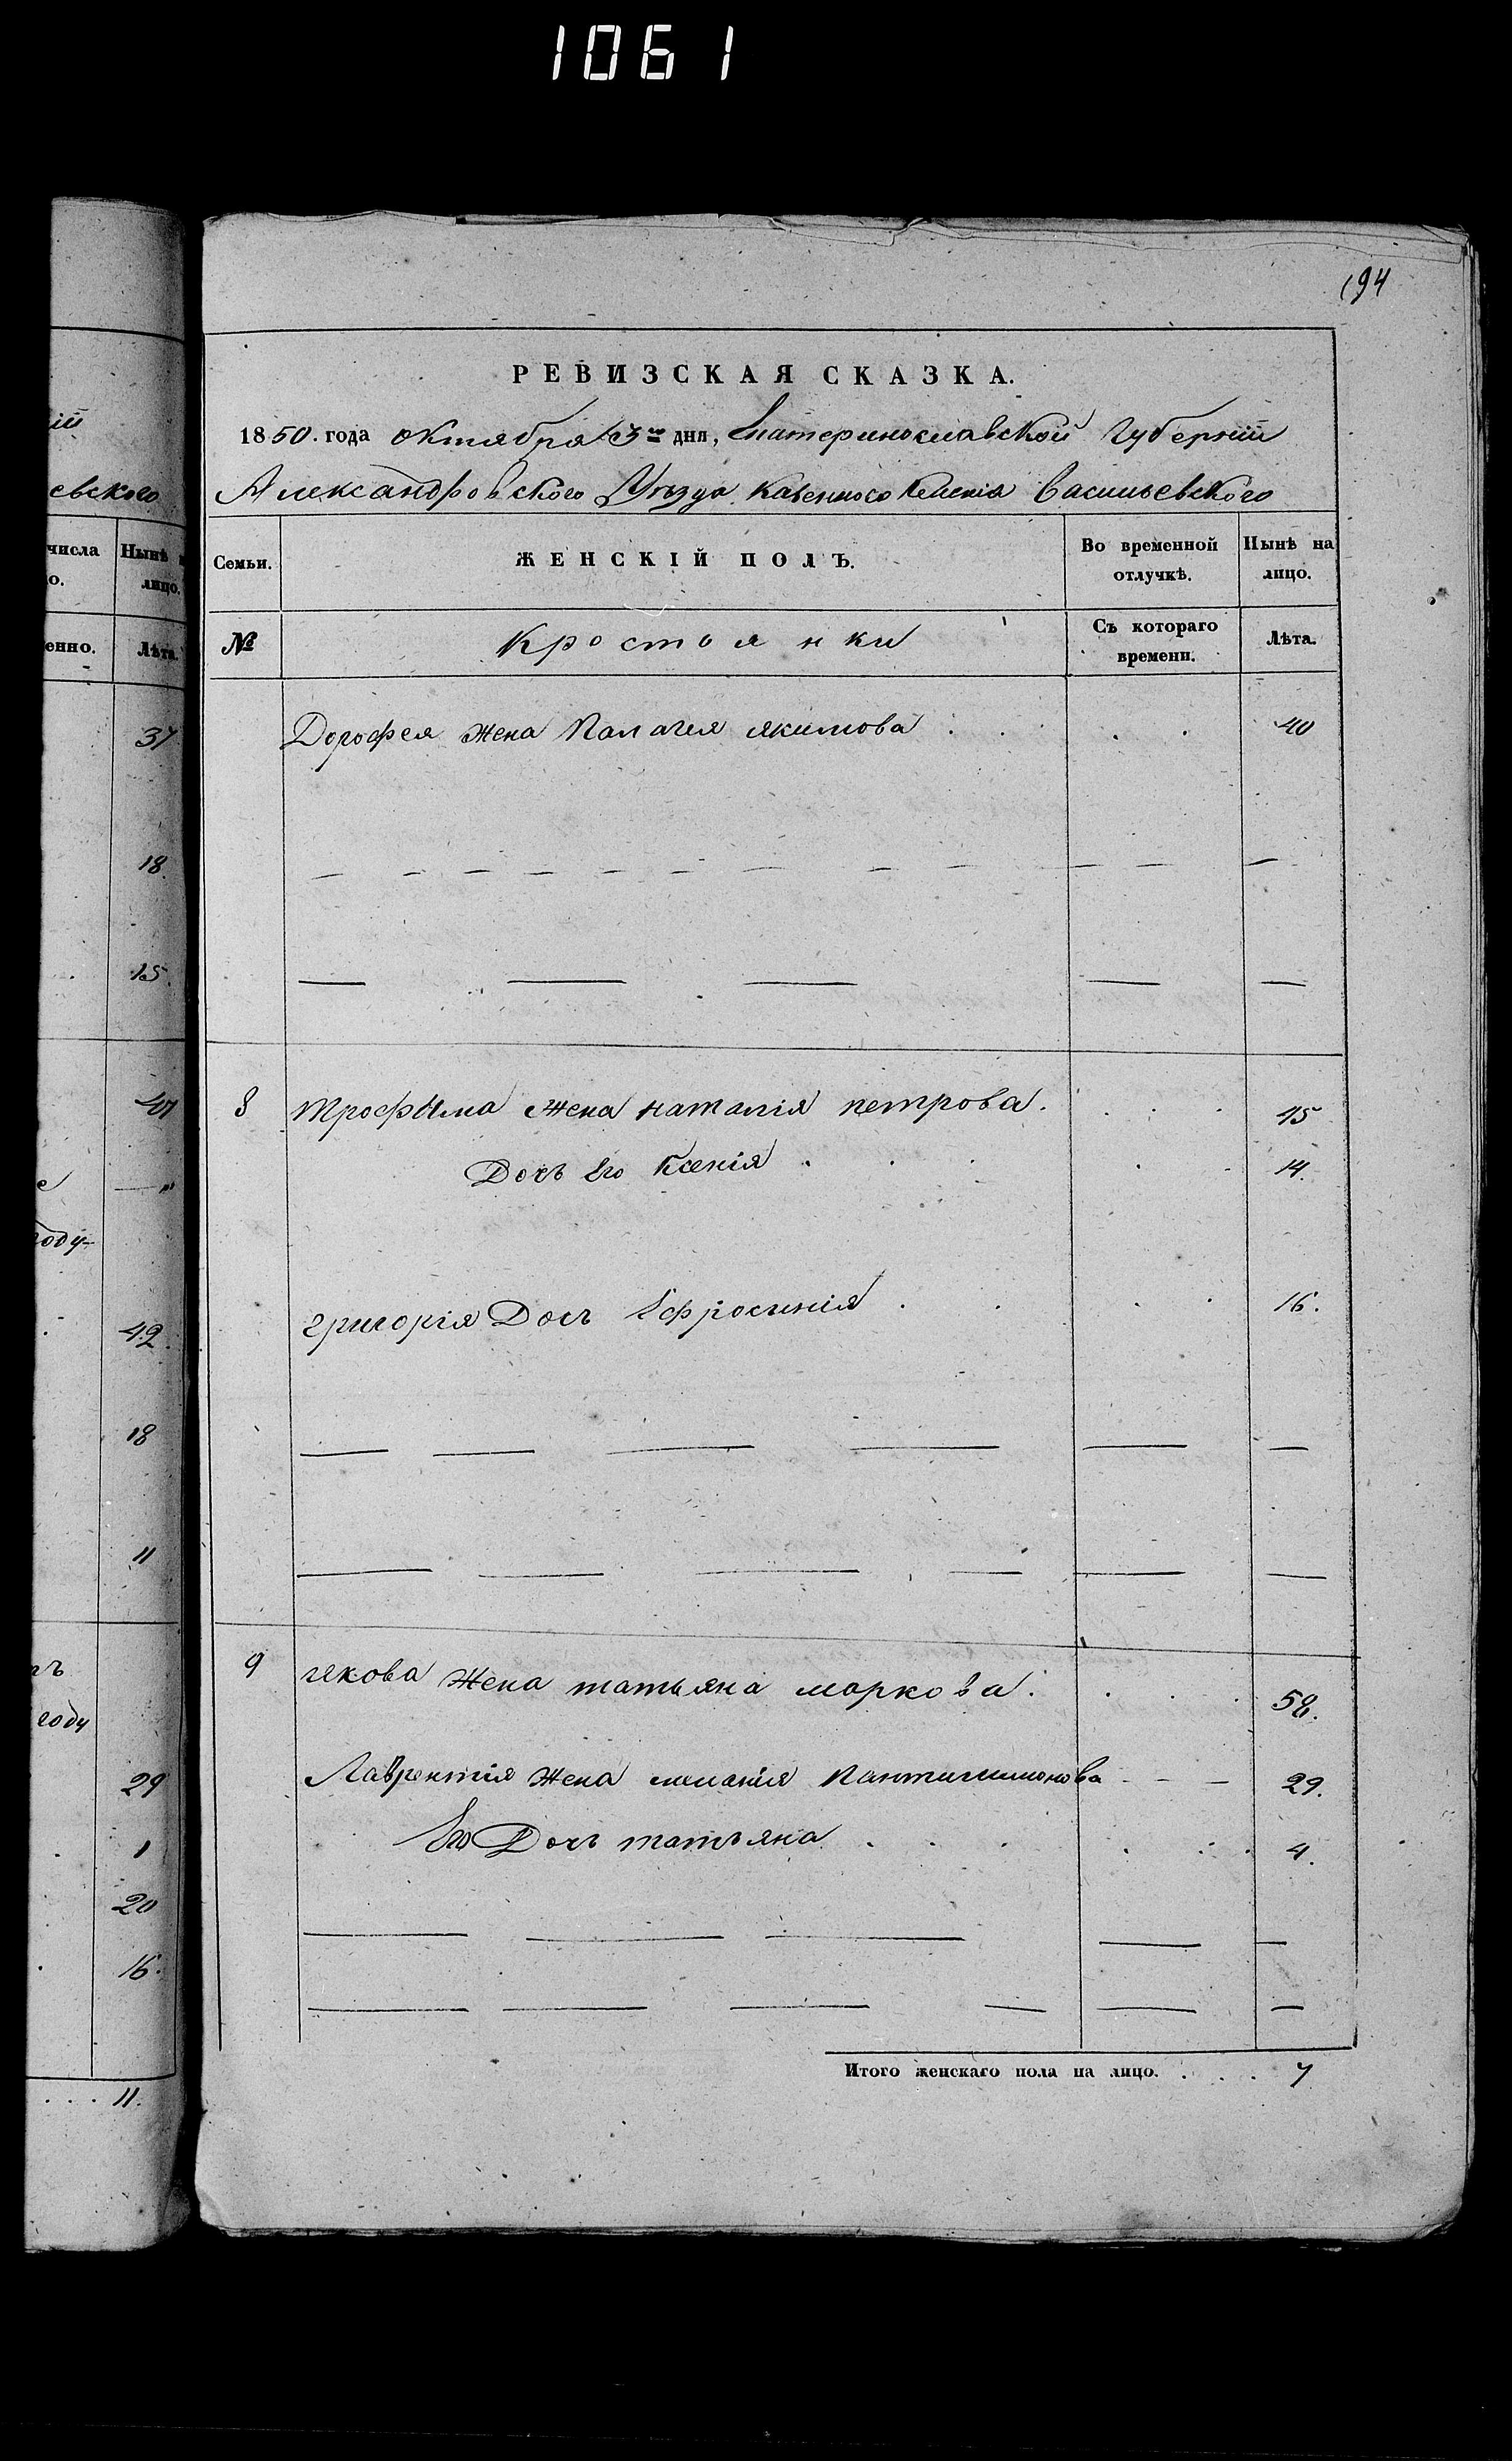 1061
194
ій
евского
числа Нынѣ
о. лицо.
енно. Лѣта.
37
18.
15.
е
году
42.
18
11
году
29
1
20
16.
. . . 11.
РЕВИЗСКАЯ СКАЗКА.
1850. года октября 3го дня, Екатеринославской губерніи
Александровского Уѣзда Казенного Селенія Васильевского
Семьи. ЖЕНСКІЙ ПОЛЪ. Во временной отлучкѣ. Нынѣ на лицо.
№ Кростьянки Съ котораго времени. Лѣта.
Дорофея жена Палагея якимова . . . . 40
8 трофима жена наталія петрова . . . . 45
Дочь Его Ксенія . . . . 14.
григорія Дочь Ефросинія . . . . 16.
9 якова жена татьяна маркова . . . . 58.
Лаврентія жена меланія Пантилимонова - - - 29.
Его Дочь татьяна . . . . 4.
Итого женскаго пола на лицо. . . . . 7